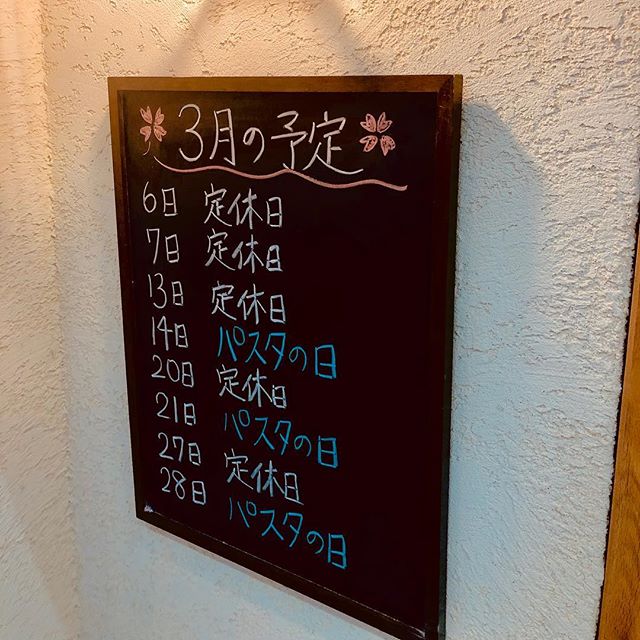 3月の予定
6日 定休日
7日 定休日
13日 定休日
14日 パスタの日
20日 定休日
21日 パスタの日
27日 定休日
28日 パスタの日